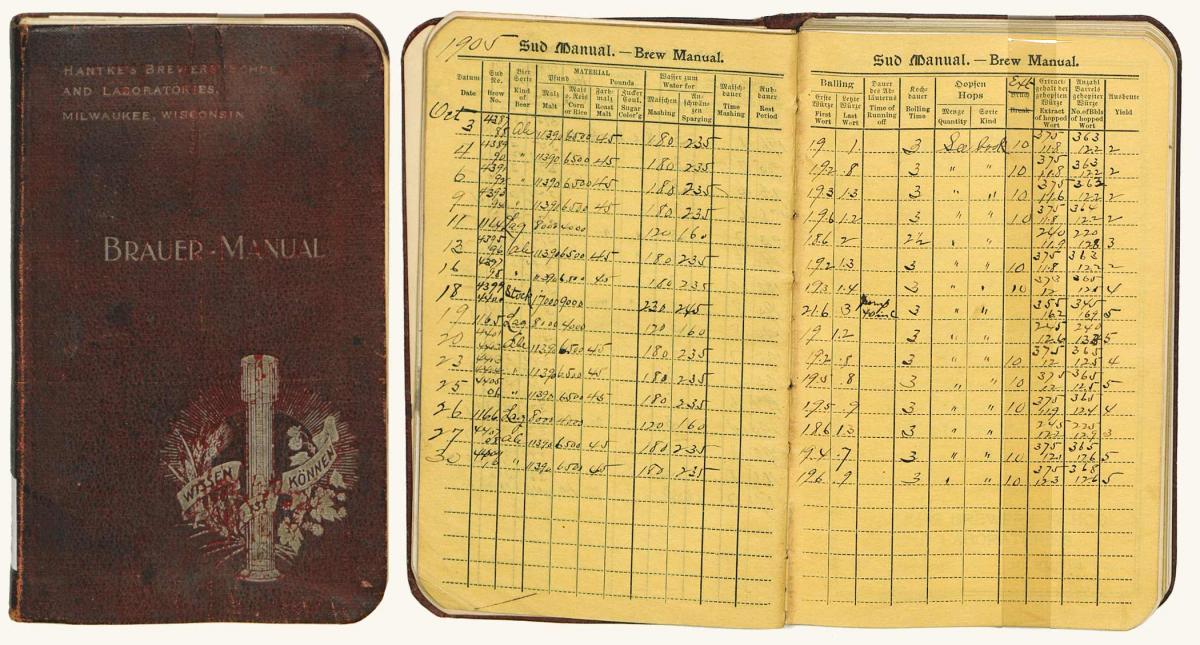 HANTKE'S BREWERS' SCHOOL
AND LABORATORIES,
MILWAUKEE, WISCONSIN
BRAUER-MANUAL
WISSEN IST KÖNNEN
1905 Sud Manual. — Brew Manual.
Datum Date
Sud No. Brew No.
Bier Sorte Kind of Beer
MATERIAL
Pfund Pounds
Malz Malt
Mais o. Reis Corn or Rice
Farbmalz Roast Malt
Zucker Coul. Sugar Color'g
Wasser zum Water for
Maischen Mashing
Anschwänzen Sparging
Maischdauer Time Mashing
Ruhdauer Rest Period
Oct
3 4387 88 Ale 11390 6500 45 180 235
4 4389 90 " 11390 6500 45 180 235
6 4391 92 " 11390 6500 45 180 235
9 4393 94 " 11390 6500 45 180 235
11 1164 Lag 8000 4000 120 160
13 4395 96 Ale 11390 6500 45 180 235
16 4397 98 " 11390 6500 45 180 235
18 4399 4400 Stock 17000 9000 230 245
19 1165 Lag 8000 4000 120 160
20 4401 Ale 11390 6500 45 180 235
23 " 11390 6500 45 180 235
25 4405 06 " 11390 6500 45 180 235
26 1166 Lag 8000 4000 120 160
27 4407 08 Ale 11390 6500 45 180 235
30 4409 10 " 11390 6500 45 180 235
Sud Manual. — Brew Manual.
Balling
Erste Würze First Wort
Letzte Würze Last Wort
Dauer des Abläuterns Time of Running off
Kochdauer Boiling Time
Hopfen Hops
Menge Quantity
Sorte Kind
Ext
Break
Extractgehalt der gehopften Würze Extract of hopped Wort
Anzahl Barrels gehopfter Würze No. of Bbls of hopped Wort
Ausbeute Yield
19 1 3 10 375 11.8 363 12.2 2
19.2 .8 3 " " 10 375 11.8 363 12.2 2
19.3 1.3 3 " " 10 375 11.6 363 12.2 2
19.6 1.2 3 " " 10 375 11.8 364 12.2 2
18.6 2 2½ " " 240 11.9 220 12.8 3
19.2 1.3 3 " " 10 375 11.8 363 12.2 2
19.3 1.4 3 " " 10 373 12 365 4
21.6 3 3 " " 355 16.2 345 16.9 5
19 1.2 3 245 12.6 240 5
19.2 .8 3 " " 10 375 12 365 12.5 4
19.5 .8 3 " " 10 375 12 365 12.5 5
19.5 .9 3 " " 10 375 11.9 365 12.4 4
18.6 1.3 3 " " 245 225 12.9 3
19.4 .7 3 " " 10 375 365 12.6 5
19.6 .9 3 " " 10 375 12.3 368 12.6 5